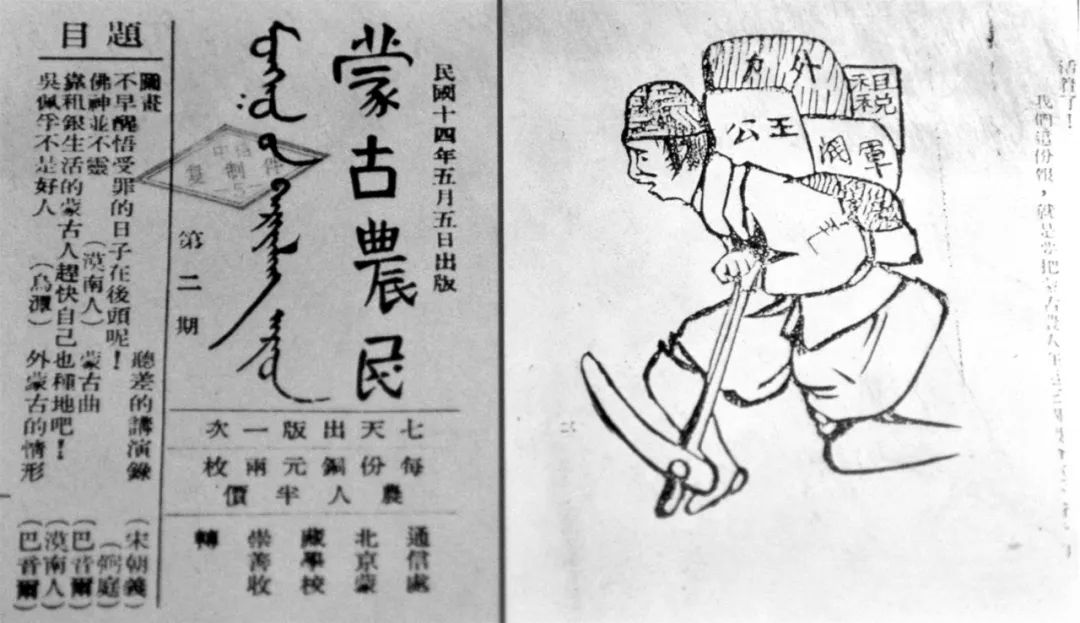 民國十四年五月五日出版
蒙古農民
第二期
七天出版一次
每份銅元兩枚
農人半價
通信處
北京蒙
藏學校
崇善收
轉
題目
圖畫 聽差的講演錄 (宋朝義)
不早醒悟受罪的日子在後頭呢！ 庭)
佛神並不靈 (漠南人) 蒙古曲 (巴音爾)
靠租銀生活的蒙古人趕快自己也種地吧！ (漠南人)
吳佩孚不是好人 (烏潭) 外蒙古的情形 (巴音爾)
复制件
外力
租税
王公
軍閥
了！
我們這份報，就是要把蒙古農人